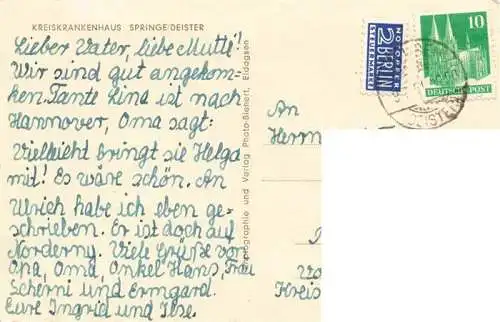 KREISKRANKENHAUS SPRINGE/DEISTER
Lieber Vater, liebe Mutti!
Wir sind gut angekom-
ken. Tante Lina ist nach
Hannover, Oma sagt:
Vielleicht bringt sie Helga
mit! Es wäre schön. An
Ulrich habe ich eben ge-
schrieben. Er ist doch auf
Norderny. Viele Grüße von
Opa, Oma, Onkel Hans, Frau
Scherni und Ermgard.
Eure Ingrid und Ilse.
Photographie und Verlag Photo-Blehert, Eldagsen
NOTOPFER
2 BERLIN
STEUERMARKE
10
DEUTSCHE POST
An
Herm
Kreis